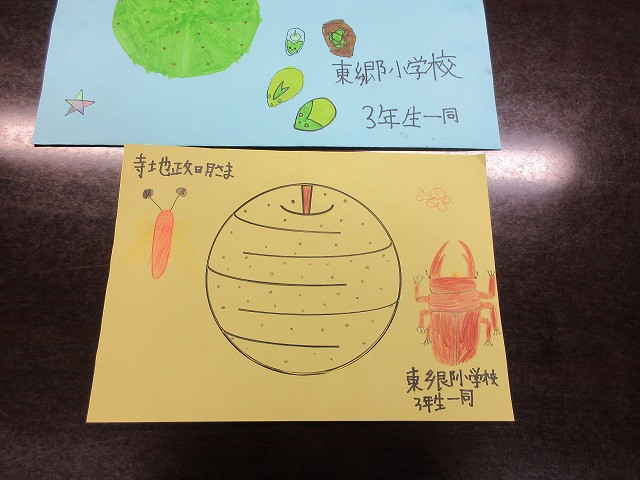 東郷小学校
3年生一同
寺地政明さま
東郷小学校
3年生一同